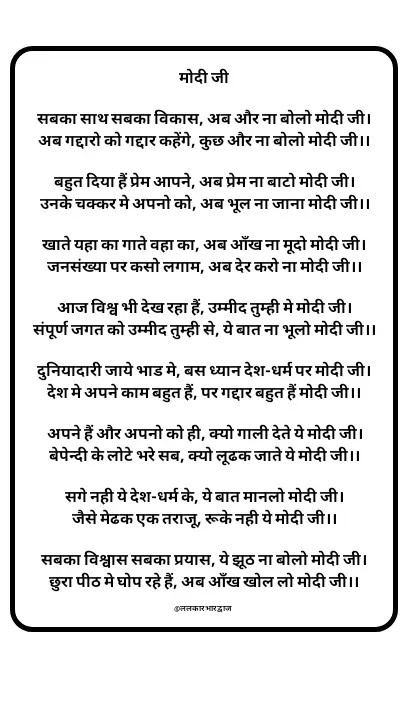 मोदी जी
सबका साथ सबका विकास, अब और ना बोलो मोदी जी।
अब गद्दारो को गद्दार कहेंगे, कुछ और ना बोलो मोदी जी।।
बहुत दिया हैं प्रेम आपने, अब प्रेम ना बाटो मोदी जी।
उनके चक्कर मे अपनो को, अब भूल ना जाना मोदी जी।।
खाते यहा का गाते वहा का, अब आँख ना मूदो मोदी जी।
जनसंख्या पर कसो लगाम, अब देर करो ना मोदी जी।।
आज विश्व भी देख रहा हैं, उम्मीद तुम्ही मे मोदी जी।
संपूर्ण जगत को उम्मीद तुम्ही से, ये बात ना भूलो मोदी जी।।
दुनियादारी जाये भाड मे, बस ध्यान देश-धर्म पर मोदी जी।
देश मे अपने काम बहुत हैं, पर गद्दार बहुत हैं मोदी जी।।
अपने हैं और अपनो को ही, क्यो गाली देते ये मोदी जी।
बेपेन्दी के लोटे भरे सब, क्यो लूढक जाते ये मोदी जी।।
सगे नही ये देश-धर्म के, ये बात मानलो मोदी जी।
जैसे मेढक एक तराजू, रूके नही ये मोदी जी।।
सबका विश्वास सबका प्रयास, ये झूठ ना बोलो मोदी जी।
छुरा पीठ मे घोप रहे हैं, अब आँख खोल लो मोदी जी।।
@ललकार भारद्वाज